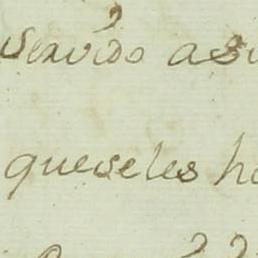 servido asi
queseles ha